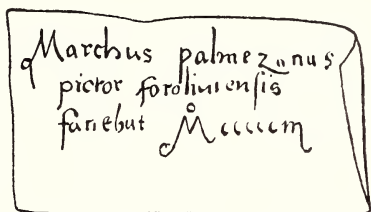 Marchus palmezanus
pictor foroliuienſis
faciebat